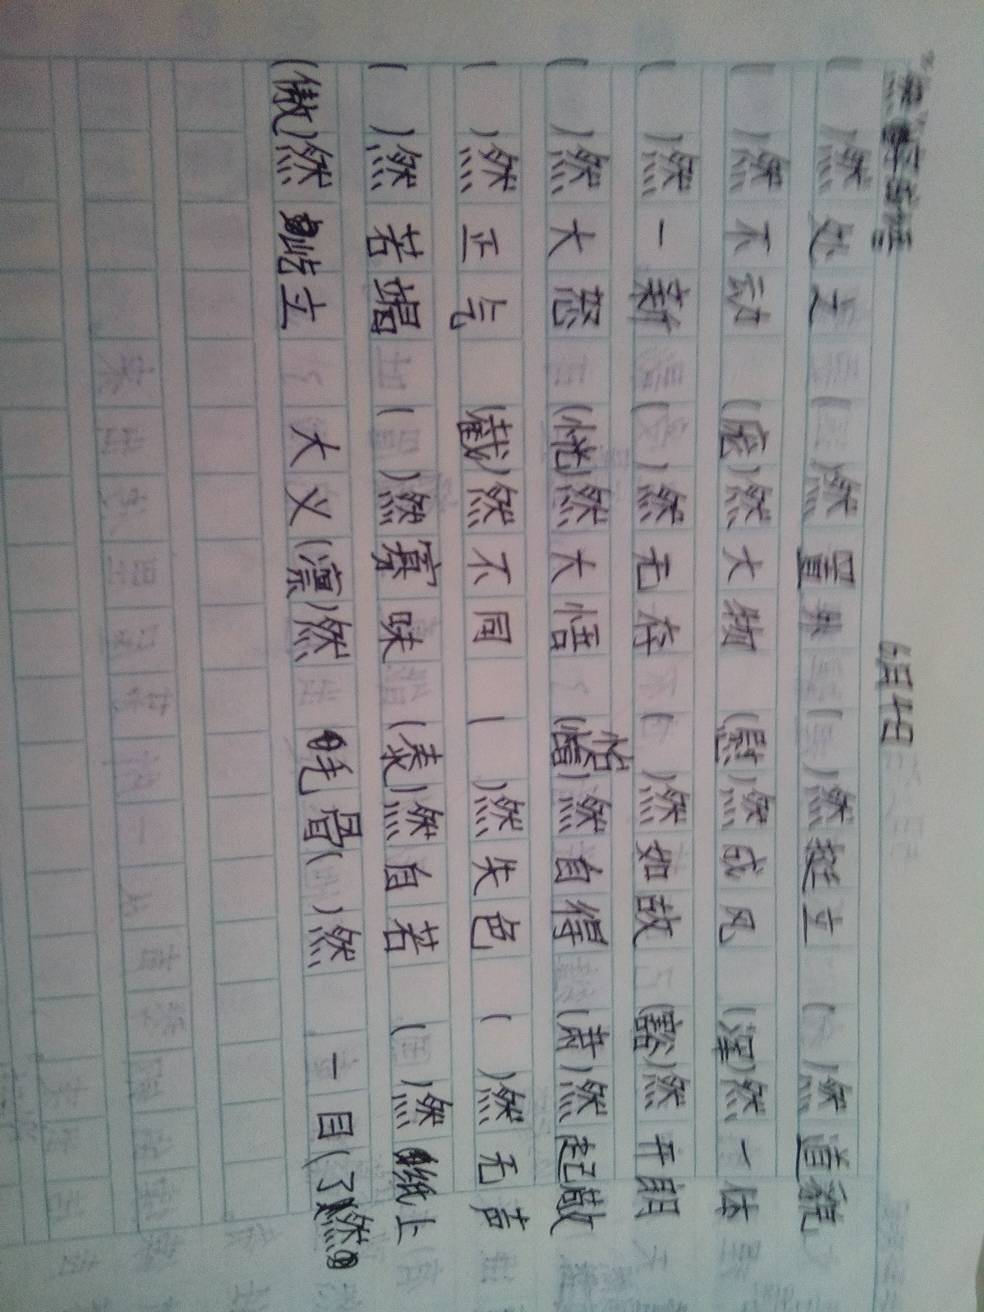 6月4日
( )然处之 ( )然置 ( )然挺立 ( )然道貌
( )然不动 (庞)然大物 (慰)然成风 (浑)然一体
( )然一新 ( )然无存 ( )然如故 (豁)然开朗
( )然大怒 (恍)然大悟 (怡)然自得 (肃)然起敬
( )然正气 (截)然不同 ( )然失色 ( )然无声
( )然若揭 ( )然寡味 (泰)然自若 ( )然纸上
(傲)然屹立 大义(凛)然 毛骨( )然 一目(了)然。